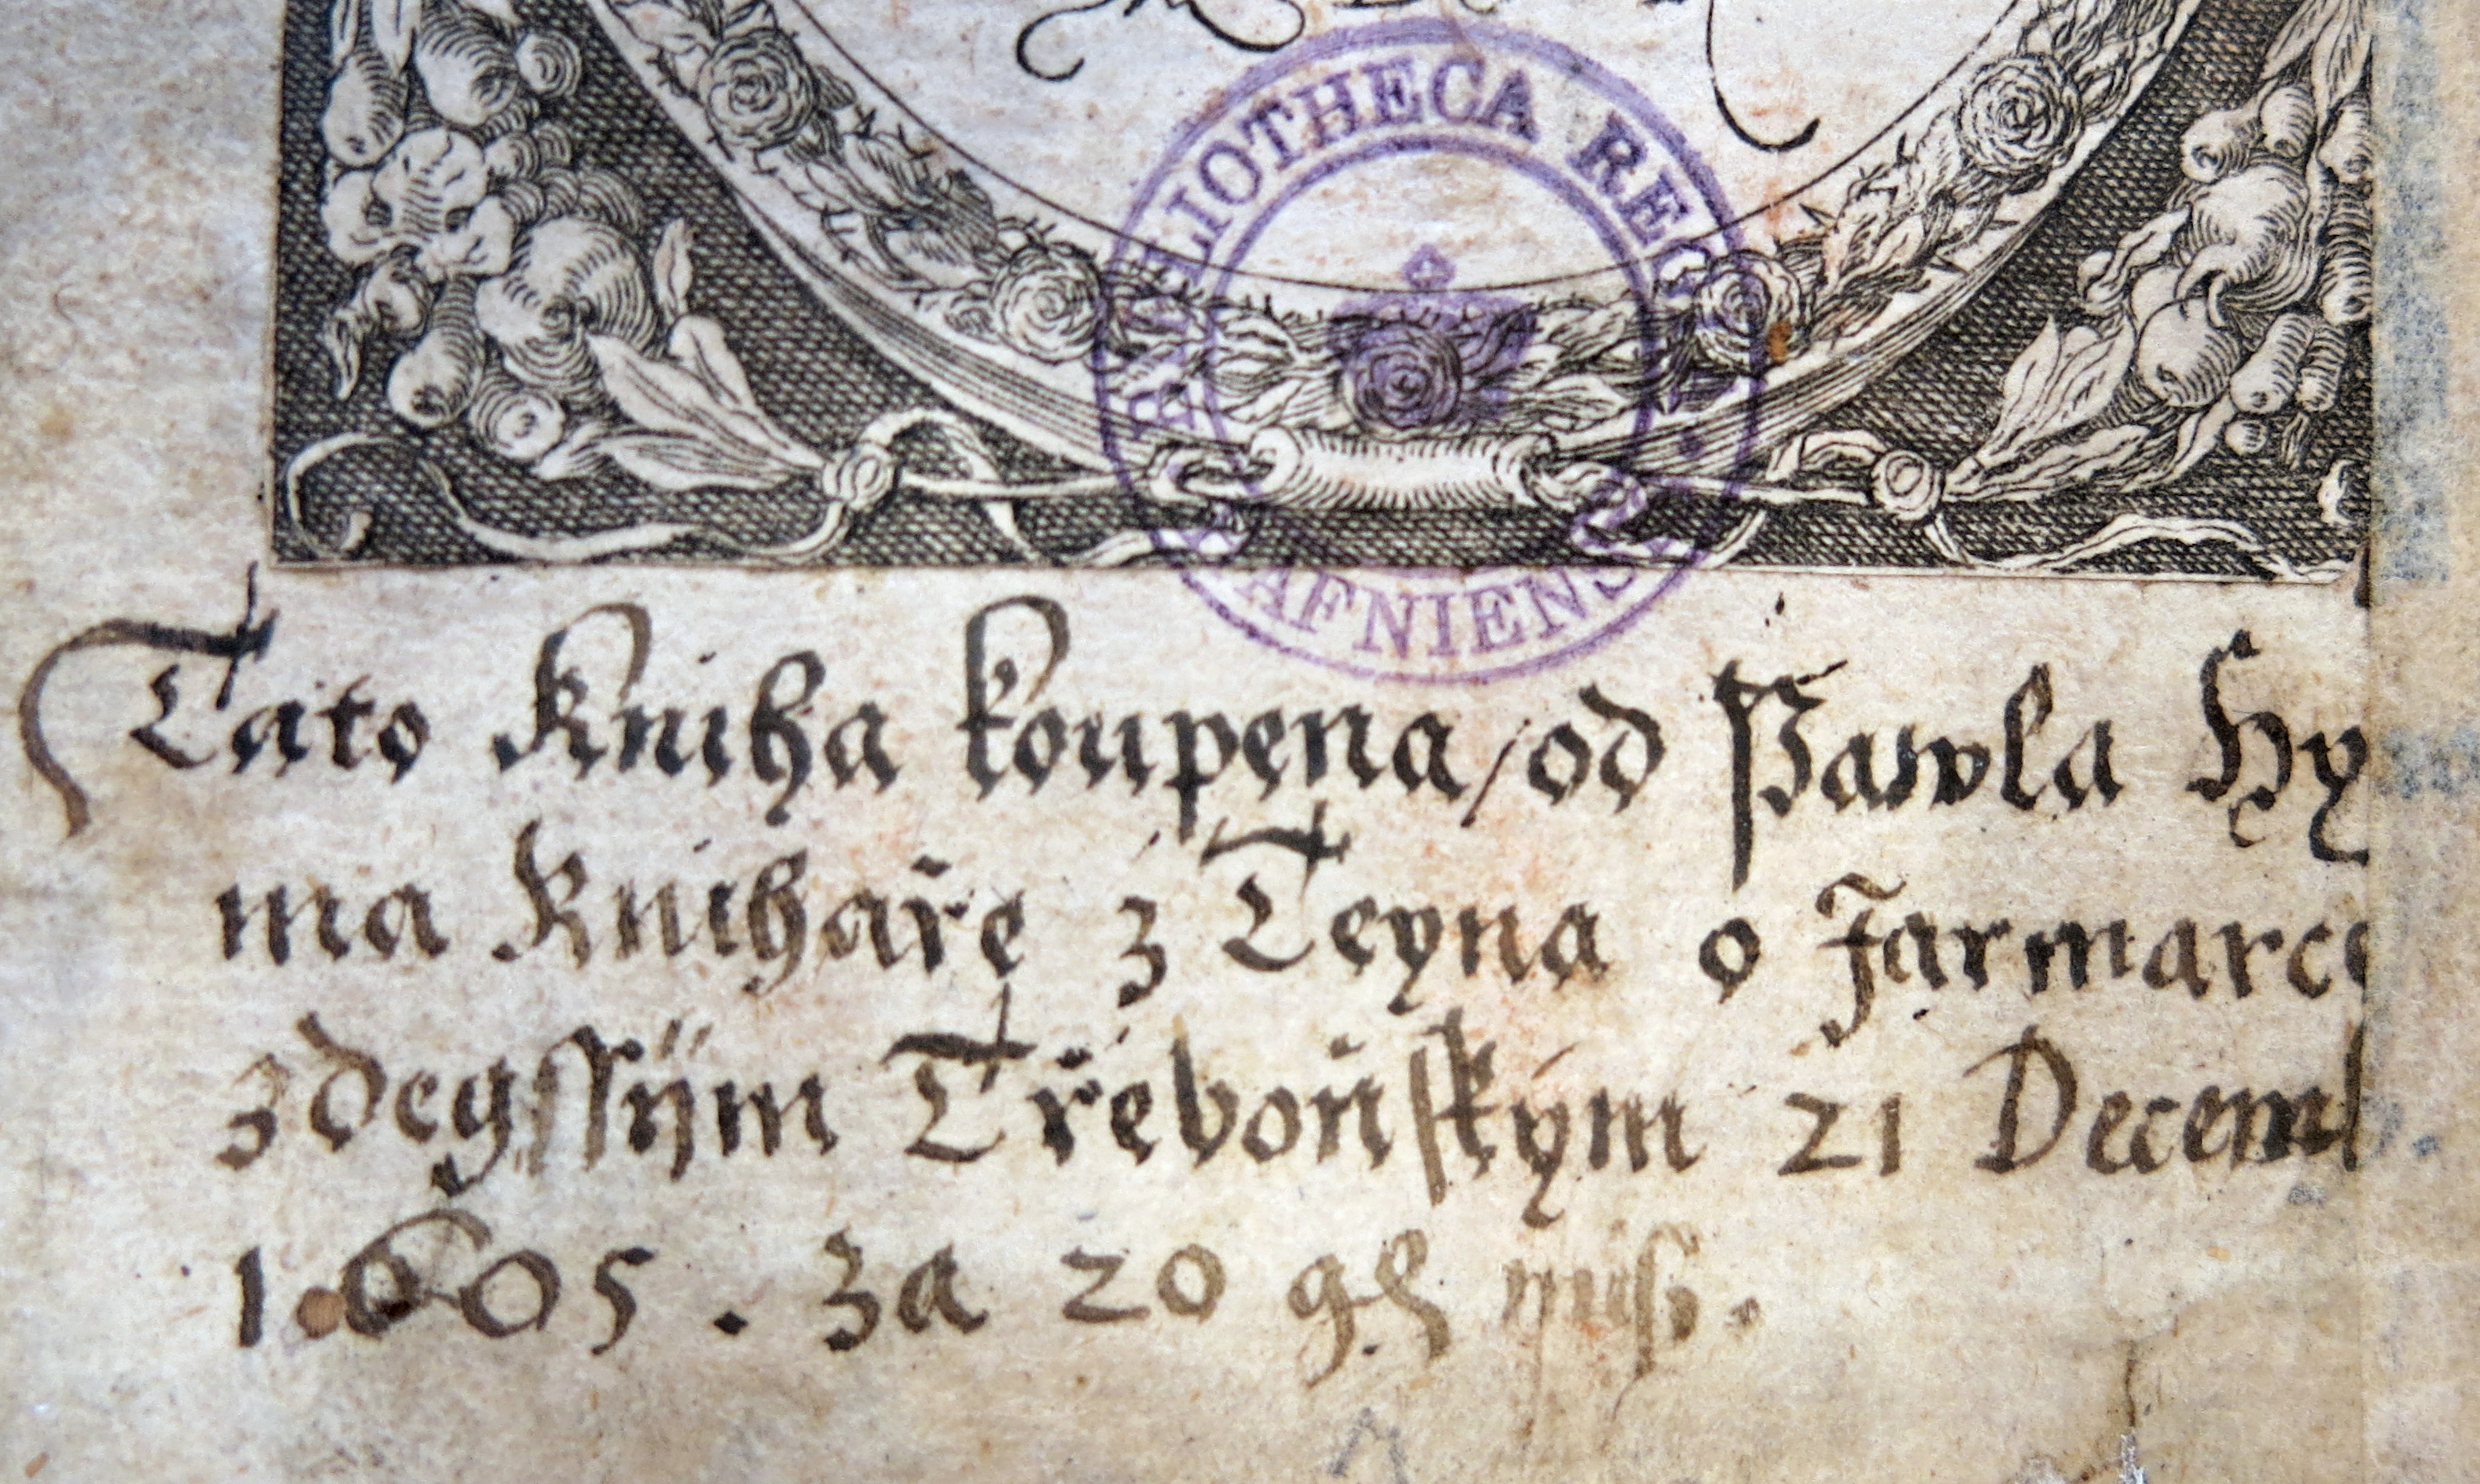 BIBLIOTHECA REGIA
HAFNIENSIS
Tato Kniha koupena / od Pawla Hy
ma Knihaře z Teyna o Jarmarce
zdegssijm Třeboňským 21 Decemb
1605 . za 20 gß miß.